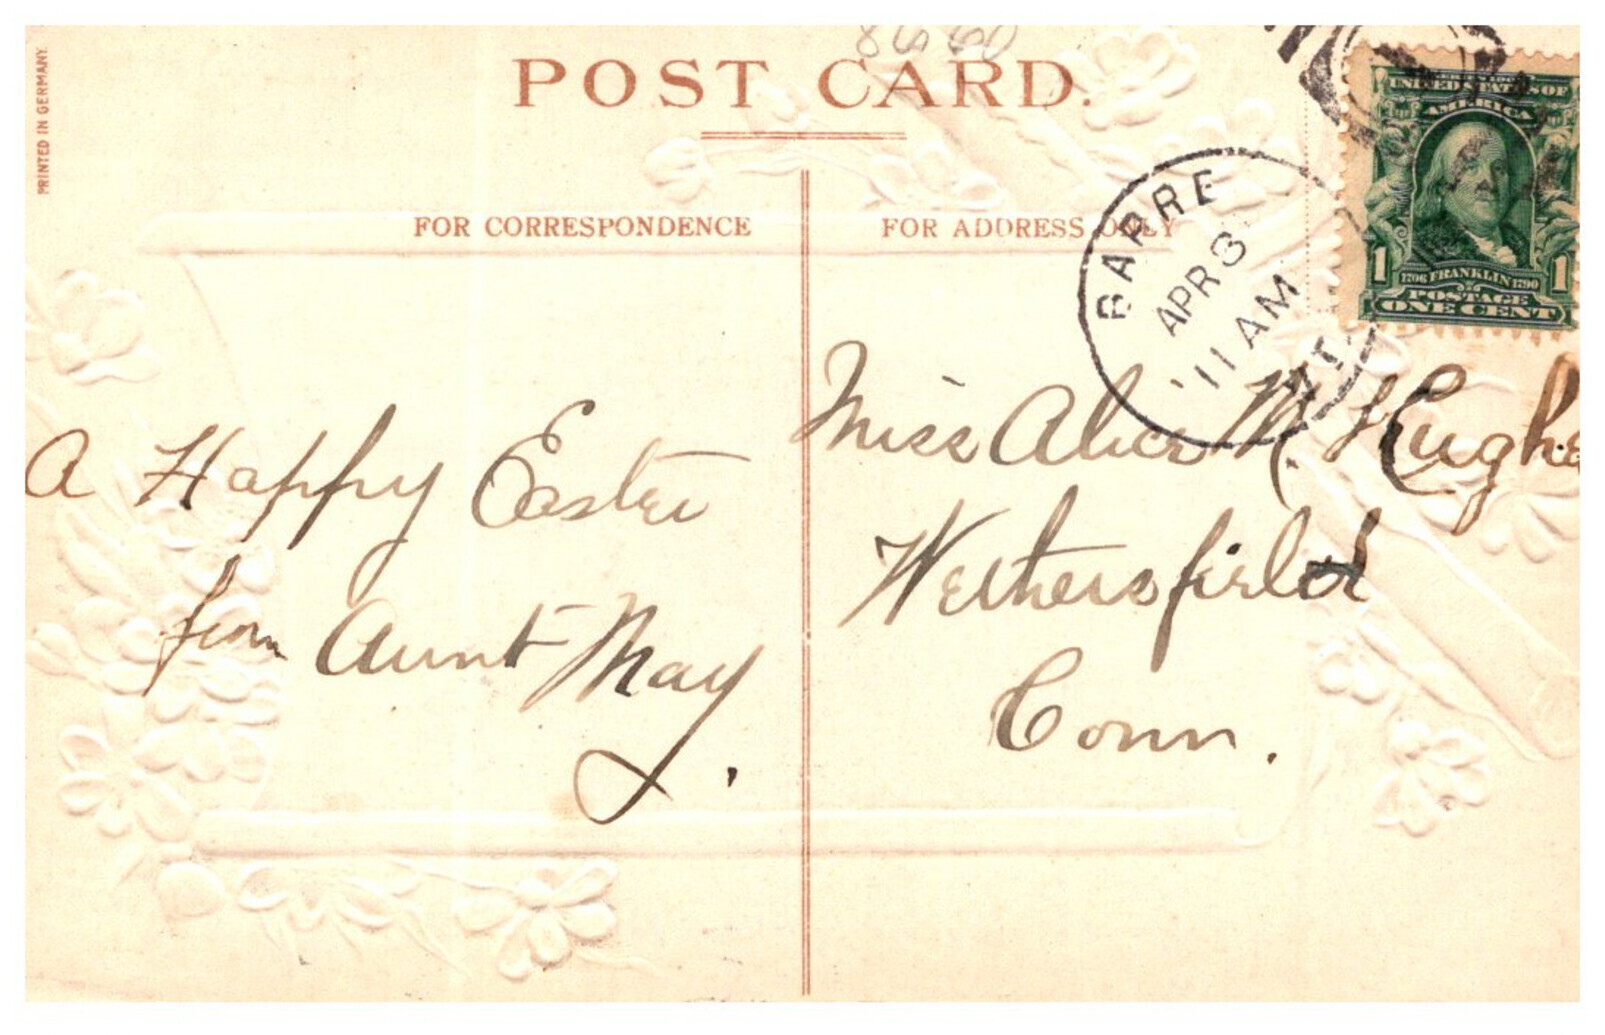 PRINTED IN GERMANY.
8660
POST CARD.
FOR CORRESPONDENCE
FOR ADDRESS ONLY
BARRE
APR 3
'11 AM
VT.
UNITED STATES OF
AMERICA
1 1
1706 FRANKLIN 1790
POSTAGE
ONE CENT
A Happy Easter
from Aunt May.
Miss Alice M. Hughes
Wethersfield
Conn.